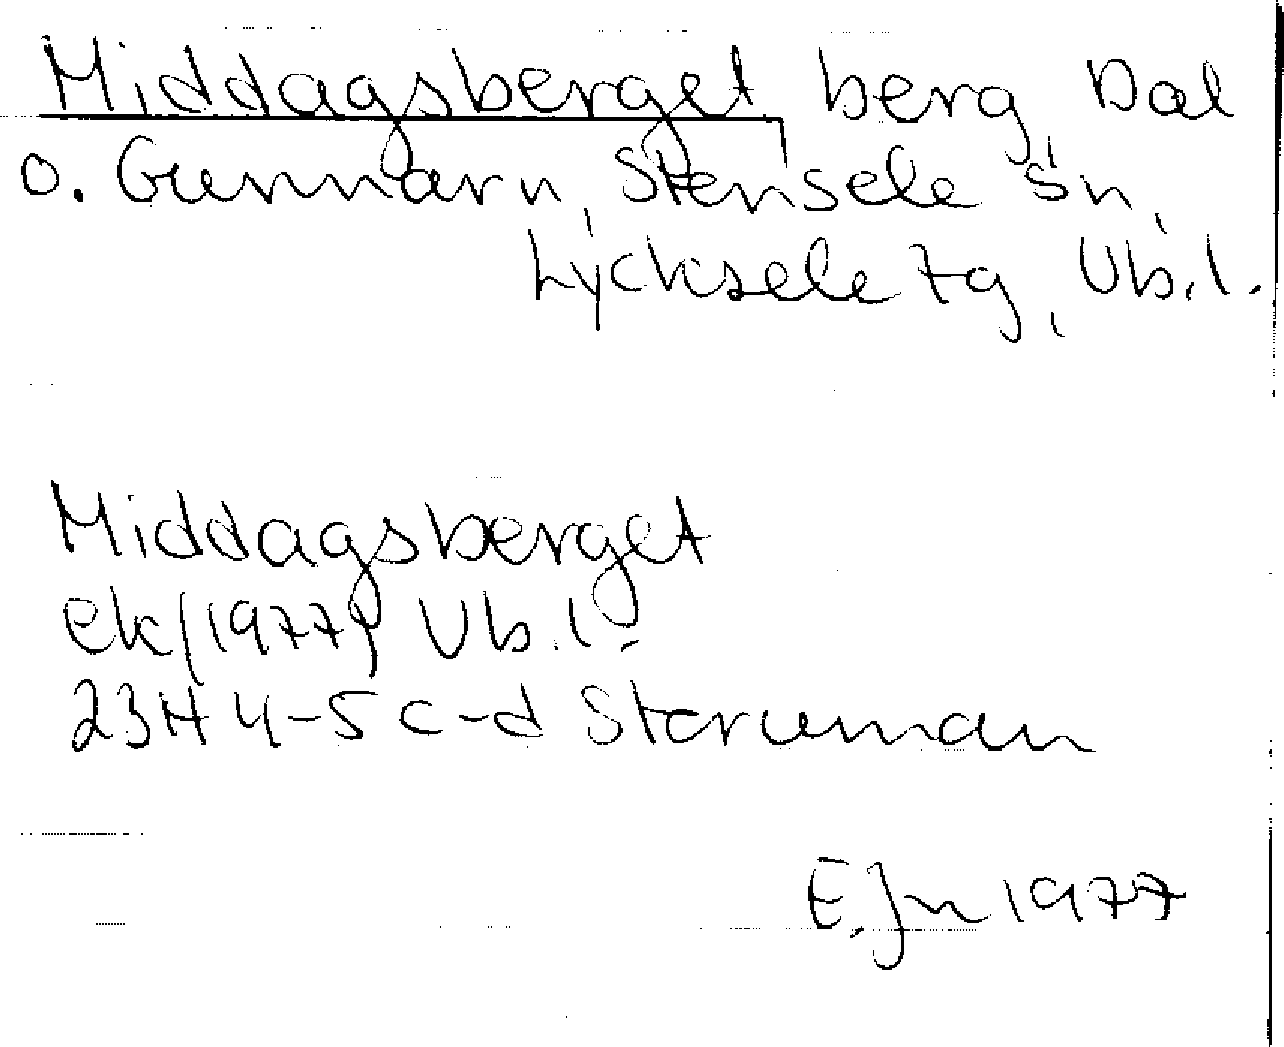 Middagsberget berg, Dal
o. Gunnarn, Stensele sn,
Lycksele tg, Vb.l.
Middagsberget
ek(1977) Vb.l.
23H 4-5 c-d Storuman
E.Jn 1977